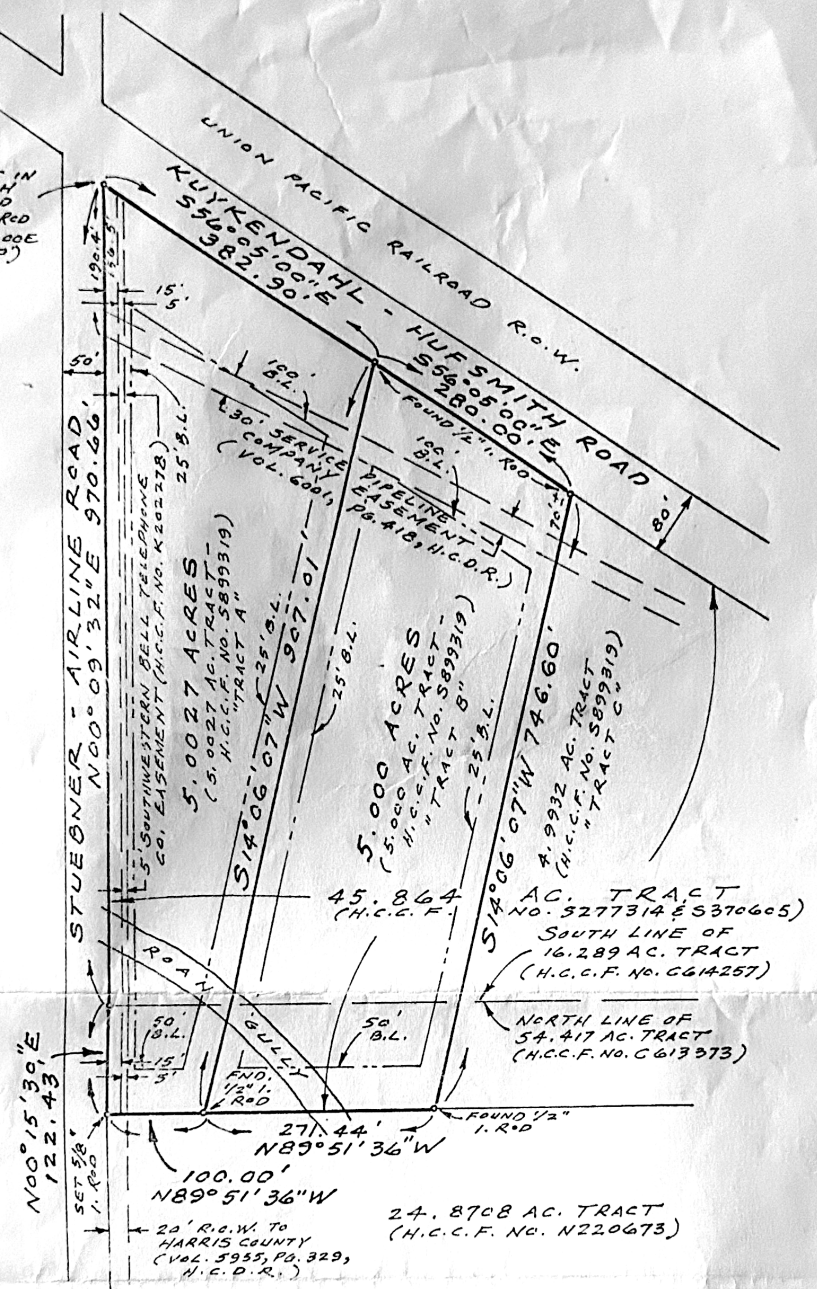 UNION PACIFIC RAILROAD R.O.W.
KUYKENDAHL - HUFSMITH ROAD
S56°05'00"E
382.90'
S56°05'00"E
280.00'
IN
RED
190.4'
196.5'
15'
5'
50'
100'
B.L.
FOUND 1/2" I. ROD
100'
B.L.
70.4'
80'
30' SERVICE PIPELINE
COMPANY EASEMENT
(VOL. 6001, PG. 418, H.C.D.R.)
STUEBNER - AIRLINE ROAD
N00°09'32"E 970.66'
5' SOUTHWESTERN BELL TELEPHONE
CO. EASEMENT (H.C.C.F. NO. K202278)
25' B.L.
5.0027 ACRES
(5.0027 AC. TRACT -
H.C.C.F. NO. S899319)
"TRACT A"
25' B.L.
S14°06'07"W 907.01'
25' B.L.
5.000 ACRES
(5.000 AC. TRACT -
H.C.C.F. NO. S899319)
"TRACT B"
25' B.L.
S14°06'07"W 746.60'
4.9932 AC. TRACT
(H.C.C.F. NO. S899319)
"TRACT C"
45.864 AC. TRACT
(H.C.C.F. NO. S277314 & S370605)
SOUTH LINE OF
16.289 AC. TRACT
(H.C.C.F. NO. C614257)
NORTH LINE OF
54.417 AC. TRACT
(H.C.C.F. NO. C613373)
ROAN GULLY
50'
B.L.
50'
B.L.
15'
5'
FND.
1/2" I.
ROD
FOUND 1/2"
I. ROD
N00°15'30"E
122.43'
SET 5/8"
I. ROD
271.44'
N89°51'36"W
100.00'
N89°51'36"W
20' R.O.W. TO
HARRIS COUNTY
(VOL. 5955, PG. 329,
H.C.D.R.)
24.8708 AC. TRACT
(H.C.C.F. NO. N220673)